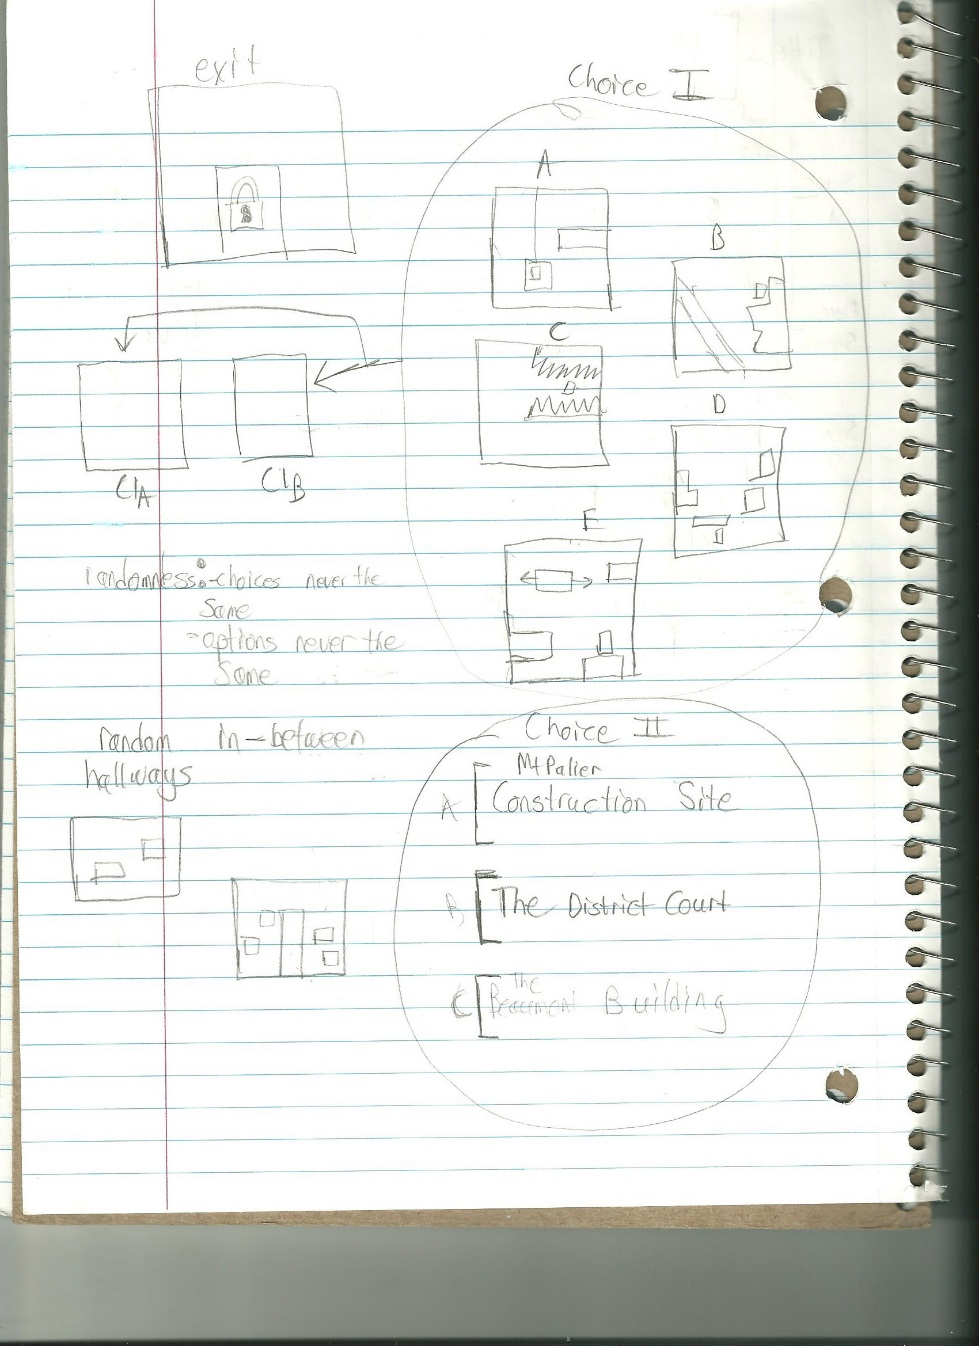 exit
Choice I
A
B
C
D
E
CIA
CIB
randomness:-choices never the
same
-options never the
same
random in-between
hallways
Choice II
Mt Palier
A Construction Site
B The District Court
The
C Building